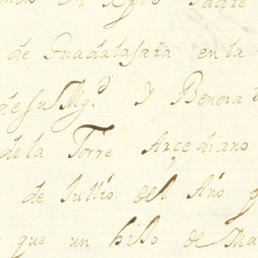 en Xpto Padre
de Guadalajara en la
de su Mg.d Y Venera
de la Torre Arcediano
de Jullio del Año
que un hijo de